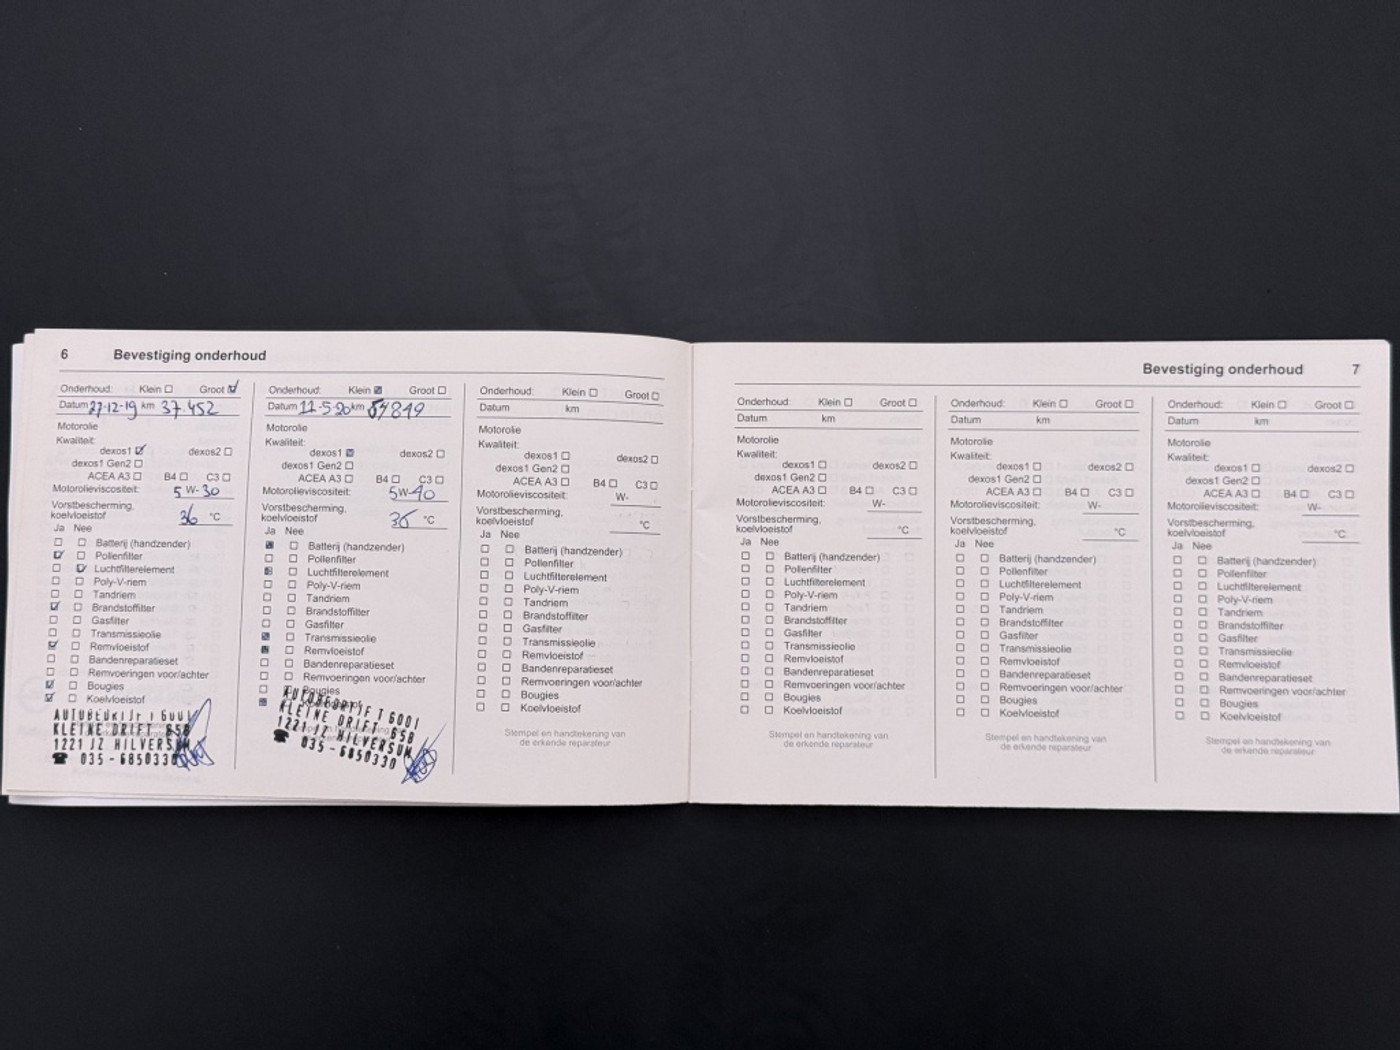 6 Bevestiging onderhoud
Onderhoud: Klein Groot
Datum 27-12-19 km 37.452
Motorolie
Kwaliteit:
dexos1 dexos2
dexos1 Gen2
ACEA A3 B4 C3
Motorolieviscositeit: 5 W-30
Vorstbescherming,
koelvloeistof 36 °C
Ja Nee
Batterij (handzender)
Pollenfilter
Luchtfilterelement
Poly-V-riem
Tandriem
Brandstoffilter
Gasfilter
Transmissieolie
Remvloeistof
Bandenreparatieset
Remvoeringen voor/achter
Bougies
Koelvloeistof
KLEINE DRIFT 65B
1221 JZ HILVERSUM
035-6850330
Onderhoud: Klein Groot
Datum 11-5-20 km 54849
Motorolie
Kwaliteit:
dexos1 dexos2
dexos1 Gen2
ACEA A3 B4 C3
Motorolieviscositeit: 5W-40
Vorstbescherming,
koelvloeistof 36 °C
Ja Nee
Batterij (handzender)
Pollenfilter
Luchtfilterelement
Poly-V-riem
Tandriem
Brandstoffilter
Gasfilter
Transmissieolie
Remvloeistof
Bandenreparatieset
Remvoeringen voor/achter
Bougies
KLEINE DRIFT 65B
1221 JZ HILVERSUM
035-6850330
Onderhoud: Klein Groot
Datum km
Motorolie
Kwaliteit:
dexos1 dexos2
dexos1 Gen2
ACEA A3 B4 C3
Motorolieviscositeit: W-
Vorstbescherming,
koelvloeistof °C
Ja Nee
Batterij (handzender)
Pollenfilter
Luchtfilterelement
Poly-V-riem
Tandriem
Brandstoffilter
Gasfilter
Transmissieolie
Remvloeistof
Bandenreparatieset
Remvoeringen voor/achter
Bougies
Koelvloeistof
Stempel en handtekening van
de erkende reparateur
Bevestiging onderhoud 7
Onderhoud: Klein Groot
Datum km
Motorolie
Kwaliteit:
dexos1 dexos2
dexos1 Gen2
ACEA A3 B4 C3
Motorolieviscositeit: W-
Vorstbescherming,
koelvloeistof °C
Ja Nee
Batterij (handzender)
Pollenfilter
Luchtfilterelement
Poly-V-riem
Tandriem
Brandstoffilter
Gasfilter
Transmissieolie
Remvloeistof
Bandenreparatieset
Remvoeringen voor/achter
Bougies
Koelvloeistof
Stempel en handtekening van
de erkende reparateur
Onderhoud: Klein Groot
Datum km
Motorolie
Kwaliteit:
dexos1 dexos2
dexos1 Gen2
ACEA A3 B4 C3
Motorolieviscositeit: W-
Vorstbescherming,
koelvloeistof °C
Ja Nee
Batterij (handzender)
Pollenfilter
Luchtfilterelement
Poly-V-riem
Tandriem
Brandstoffilter
Gasfilter
Transmissieolie
Remvloeistof
Bandenreparatieset
Remvoeringen voor/achter
Bougies
Koelvloeistof
Stempel en handtekening van
de erkende reparateur
Onderhoud: Klein Groot
Datum km
Motorolie
Kwaliteit:
dexos1 dexos2
dexos1 Gen2
ACEA A3 B4 C3
Motorolieviscositeit: W-
Vorstbescherming,
koelvloeistof °C
Ja Nee
Batterij (handzender)
Pollenfilter
Luchtfilterelement
Poly-V-riem
Tandriem
Brandstoffilter
Gasfilter
Transmissieolie
Remvloeistof
Bandenreparatieset
Remvoeringen voor/achter
Bougies
Koelvloeistof
Stempel en handtekening van
de erkende reparateur